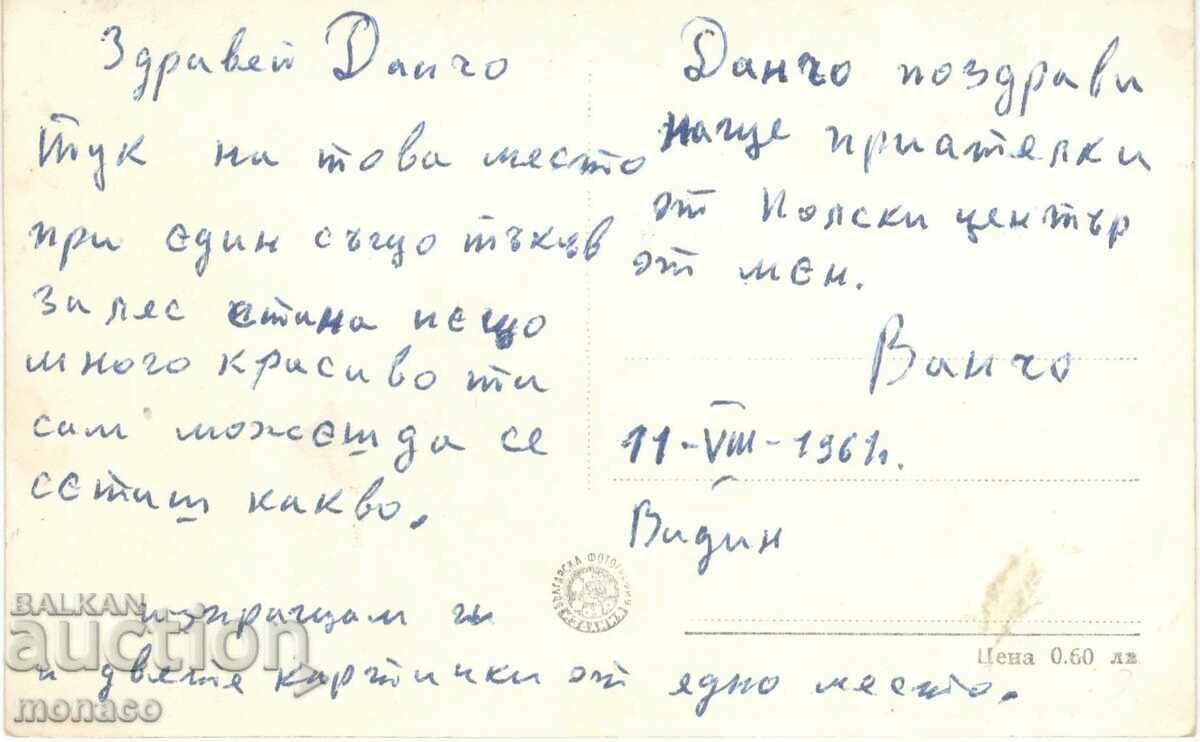 Здравей Данчо
Тук на това место
при един също такъв
залес стана нещо
много красиво ти
сам можеш да се
сетиш какво.
изпращам ти
и двете картички от едно место.
Данчо поздрави
наще приятелки
от Полски център
от мен.
Ванчо
11-VIII-1961г.
Видин
БЪЛГАРСКА ФОТОГРАФИЯ
Цена 0.60 лв
BALKAN
auction
monaco